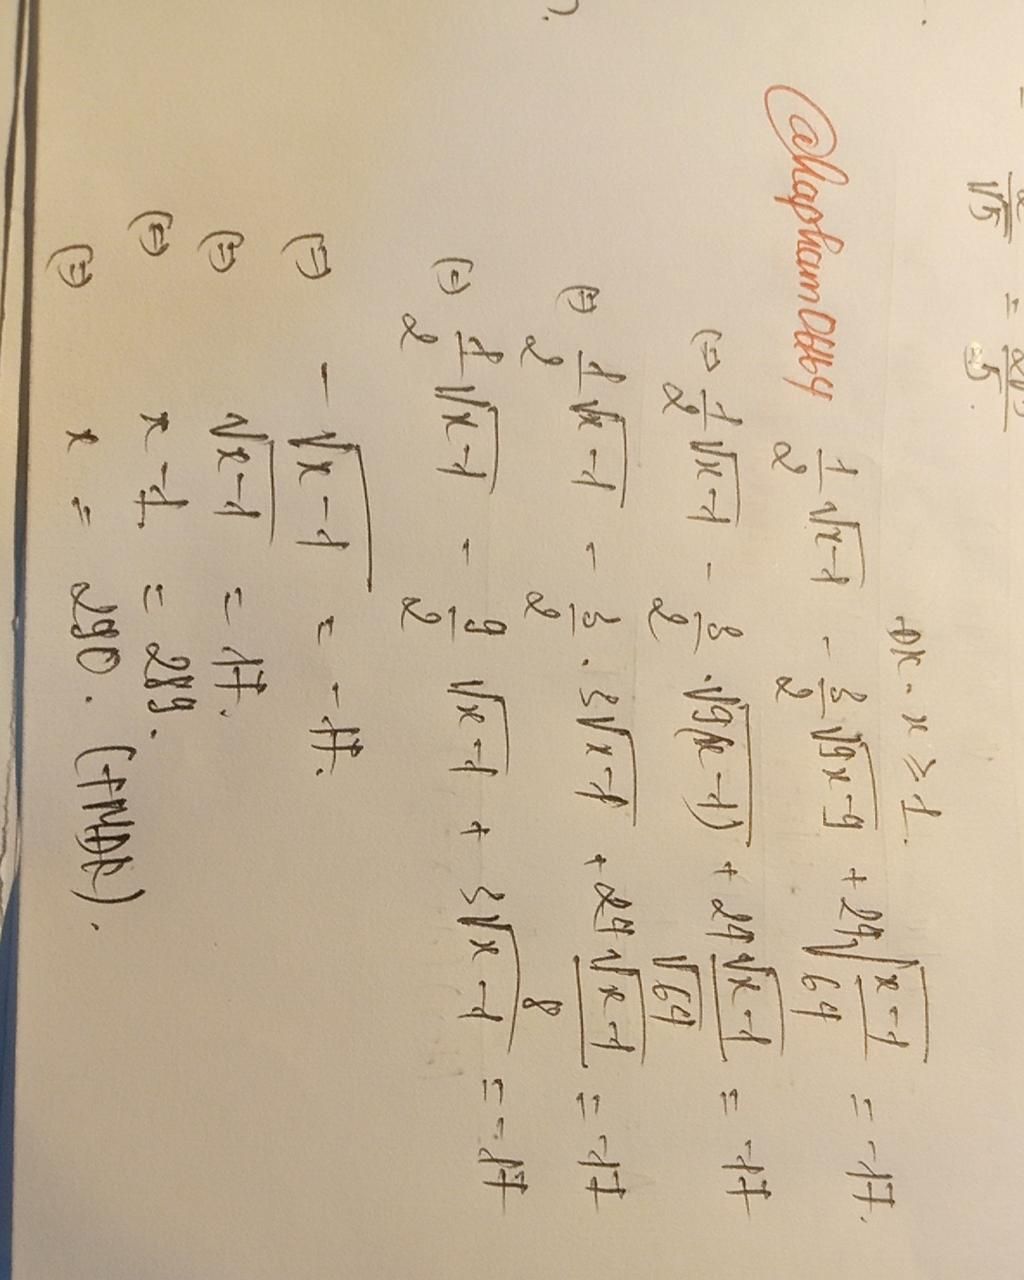 = 2/√5 = 2√5/5.
ĐK: x ≥ 1.
@hapham0464
1/2 √x-1 - 3/2 √9x-9 + 24 √x-1/64 = -17.
(=) 1/2 √x-1 - 3/2 . √9(x-1) + 24 √x-1/√64 = -17
(=) 1/2 √x-1 - 3/2 . 3√x-1 + 24 √x-1/8 = -17
(=) 1/2 √x-1 - 9/2 √x-1 + 3√x-1 = -17
(=) - √x-1 = -17.
(=) √x-1 = 17.
(=) x-1 = 289.
(=) x = 290. (TMĐK).